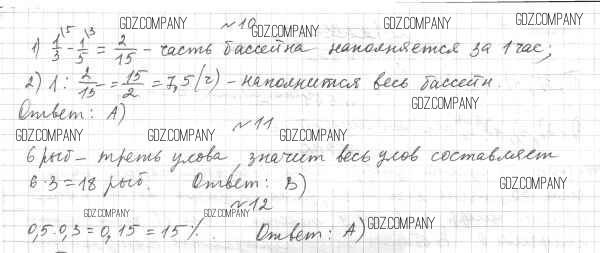 GDZ.COMPANY GDZ.COMPANY GDZ.COMPANY GDZ.COMPANY
№10
1) 1/3\5 - 1/5\3 = 2/15 - часть бассейна наполняется за 1 час;
2) 1 : 2/15 = 15/2 = 7,5 (ч) - наполнится весь бассейн.
GDZ.COMPANY
Ответ: А)
GDZ.COMPANY GDZ.COMPANY GDZ.COMPANY
№11
6 рыб - треть улова, значит весь улов составляет
6·3=18 рыб. Ответ: В)
GDZ.COMPANY
№12
GDZ.COMPANY GDZ.COMPANY
0,5·0,3=0,15=15%. Ответ: А)
GDZ.COMPANY